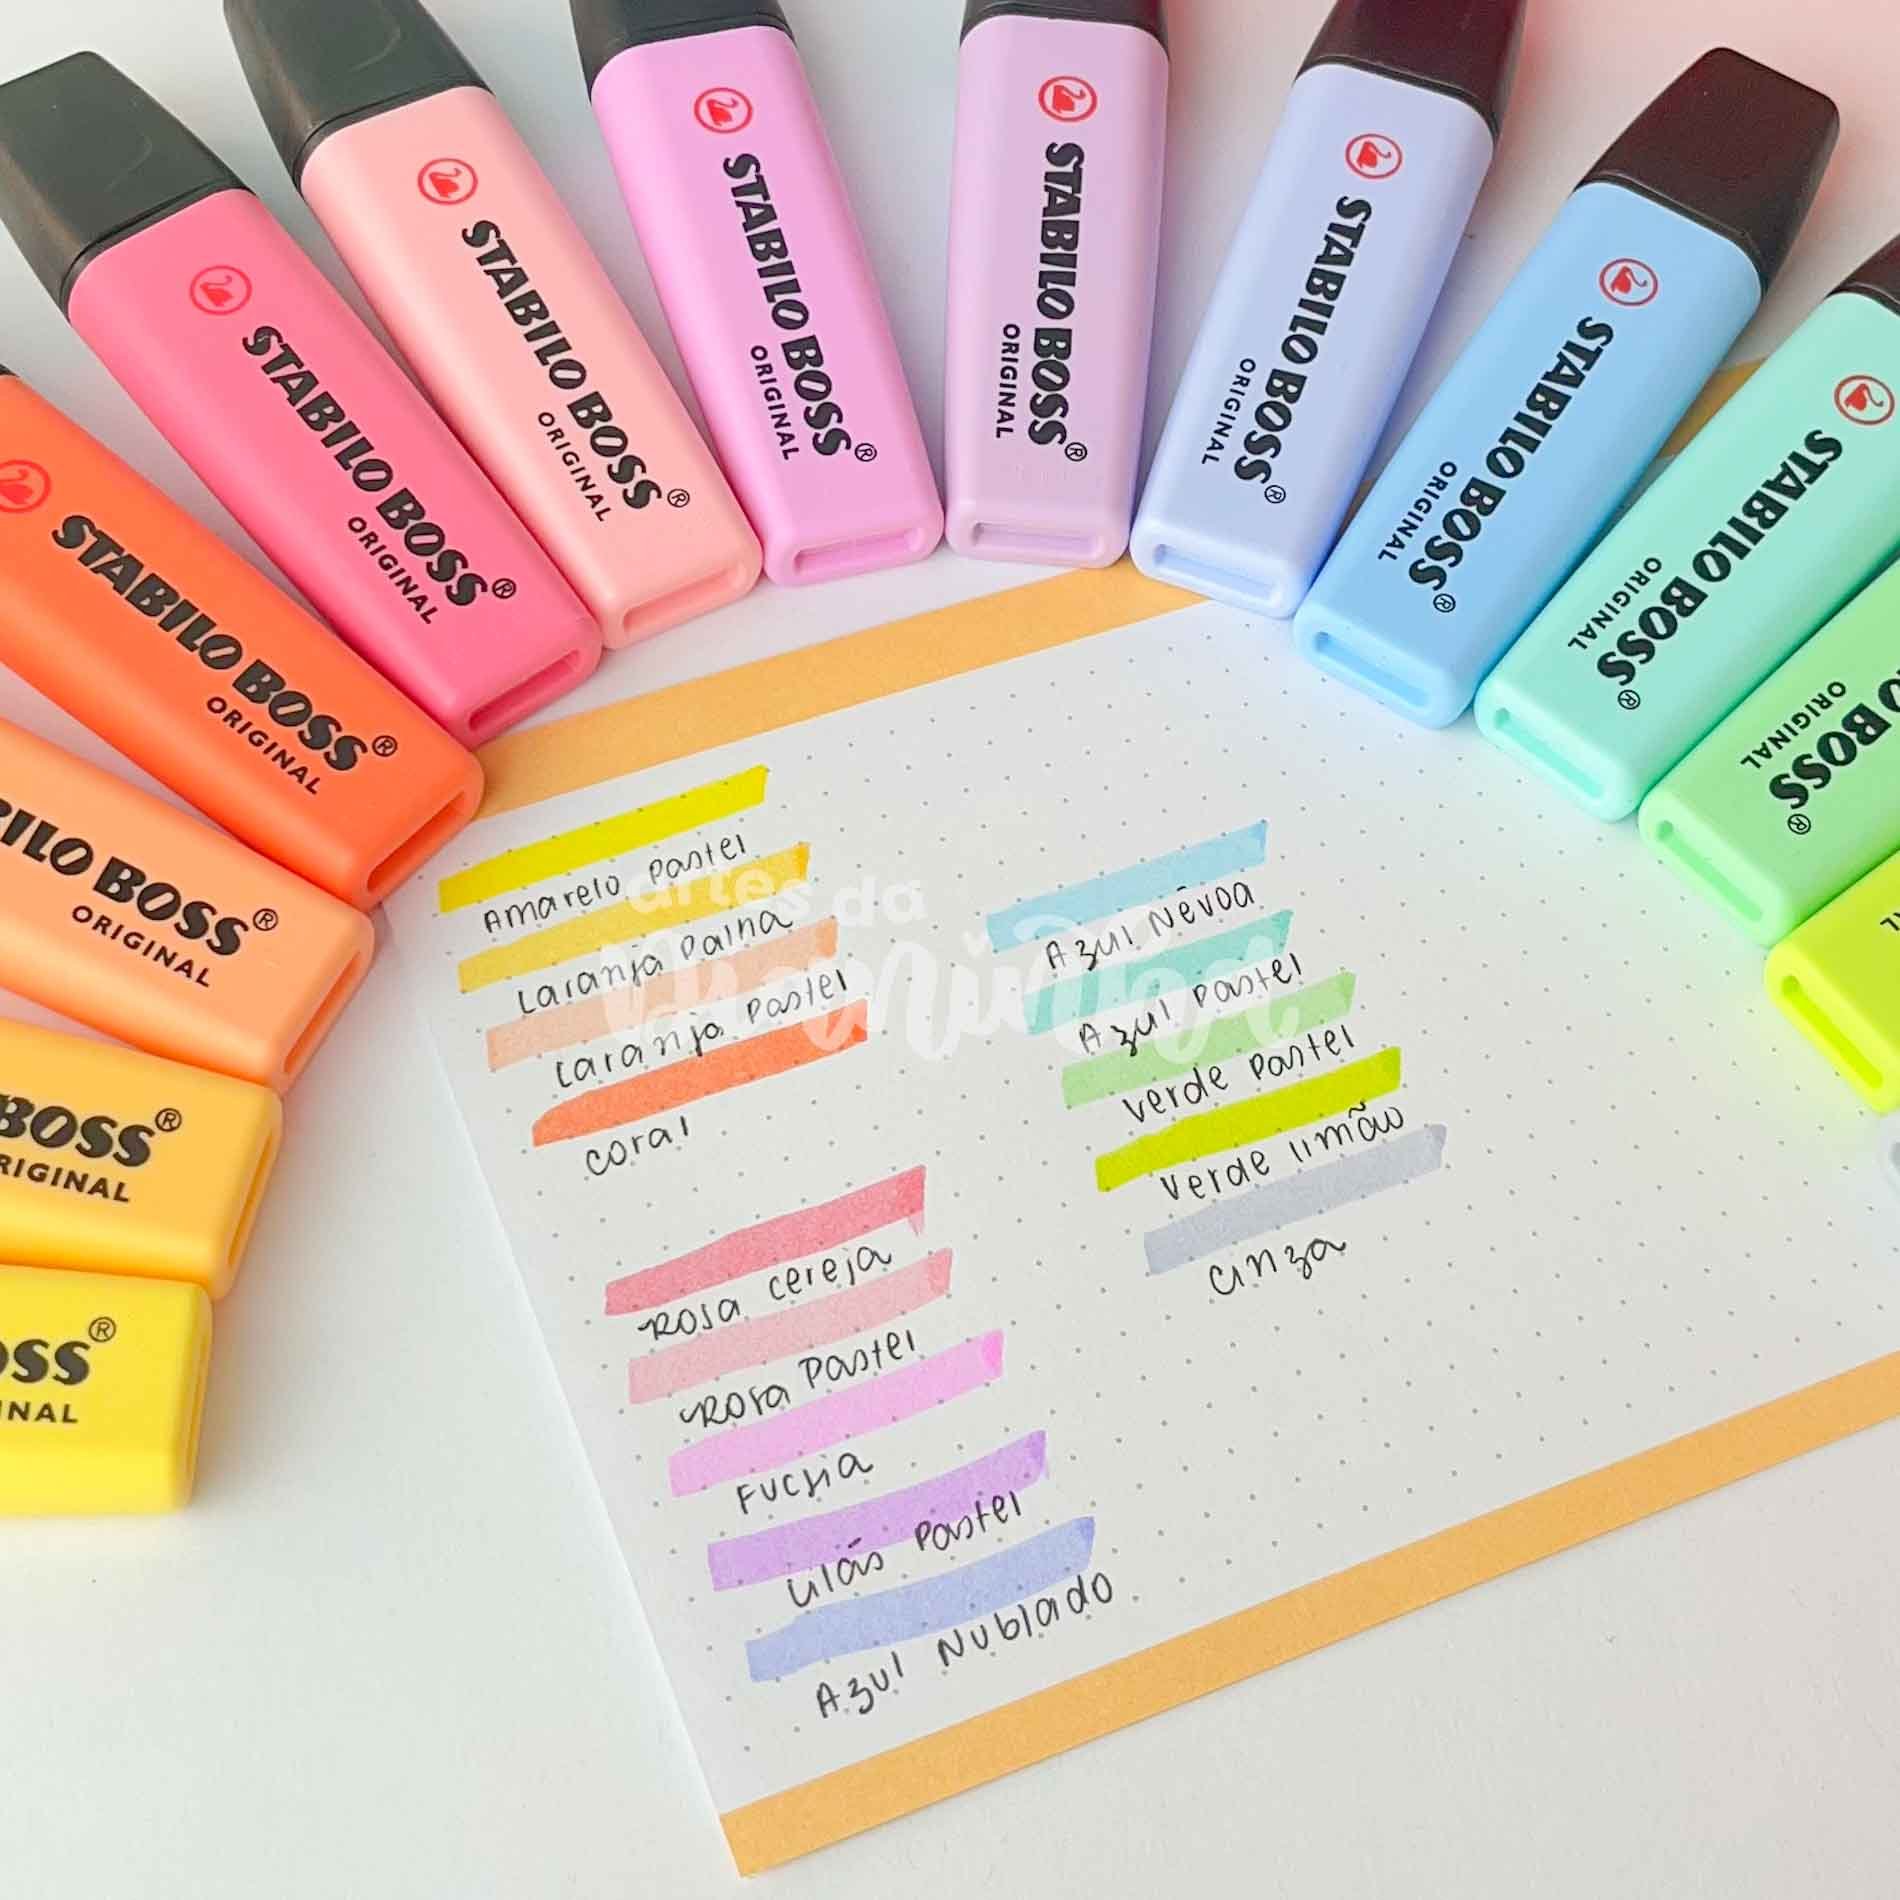 STABILO BOSS®
ORIGINAL
STABILO BOSS®
ORIGINAL
STABILO BOSS®
ORIGINAL
STABILO BOSS®
ORIGINAL
STABILO BOSS®
ORIGINAL
STABILO BOSS®
ORIGINAL
STABILO BOSS®
ORIGINAL
STABILO BOSS®
ORIGINAL
BILO BOSS®
ORIGINAL
BOSS®
RIGINAL
OSS®
INAL
O BOSS®
ORIGINAL
Amarelo Pastel
Laranja Palha
Laranja Pastel
Coral
Rosa Cereja
Rosa Pastel
Fucsia
Lilás Pastel
Azul Nublado
Azul Névoa
Azul Pastel
Verde Pastel
Verde limão
Cinza
artes da